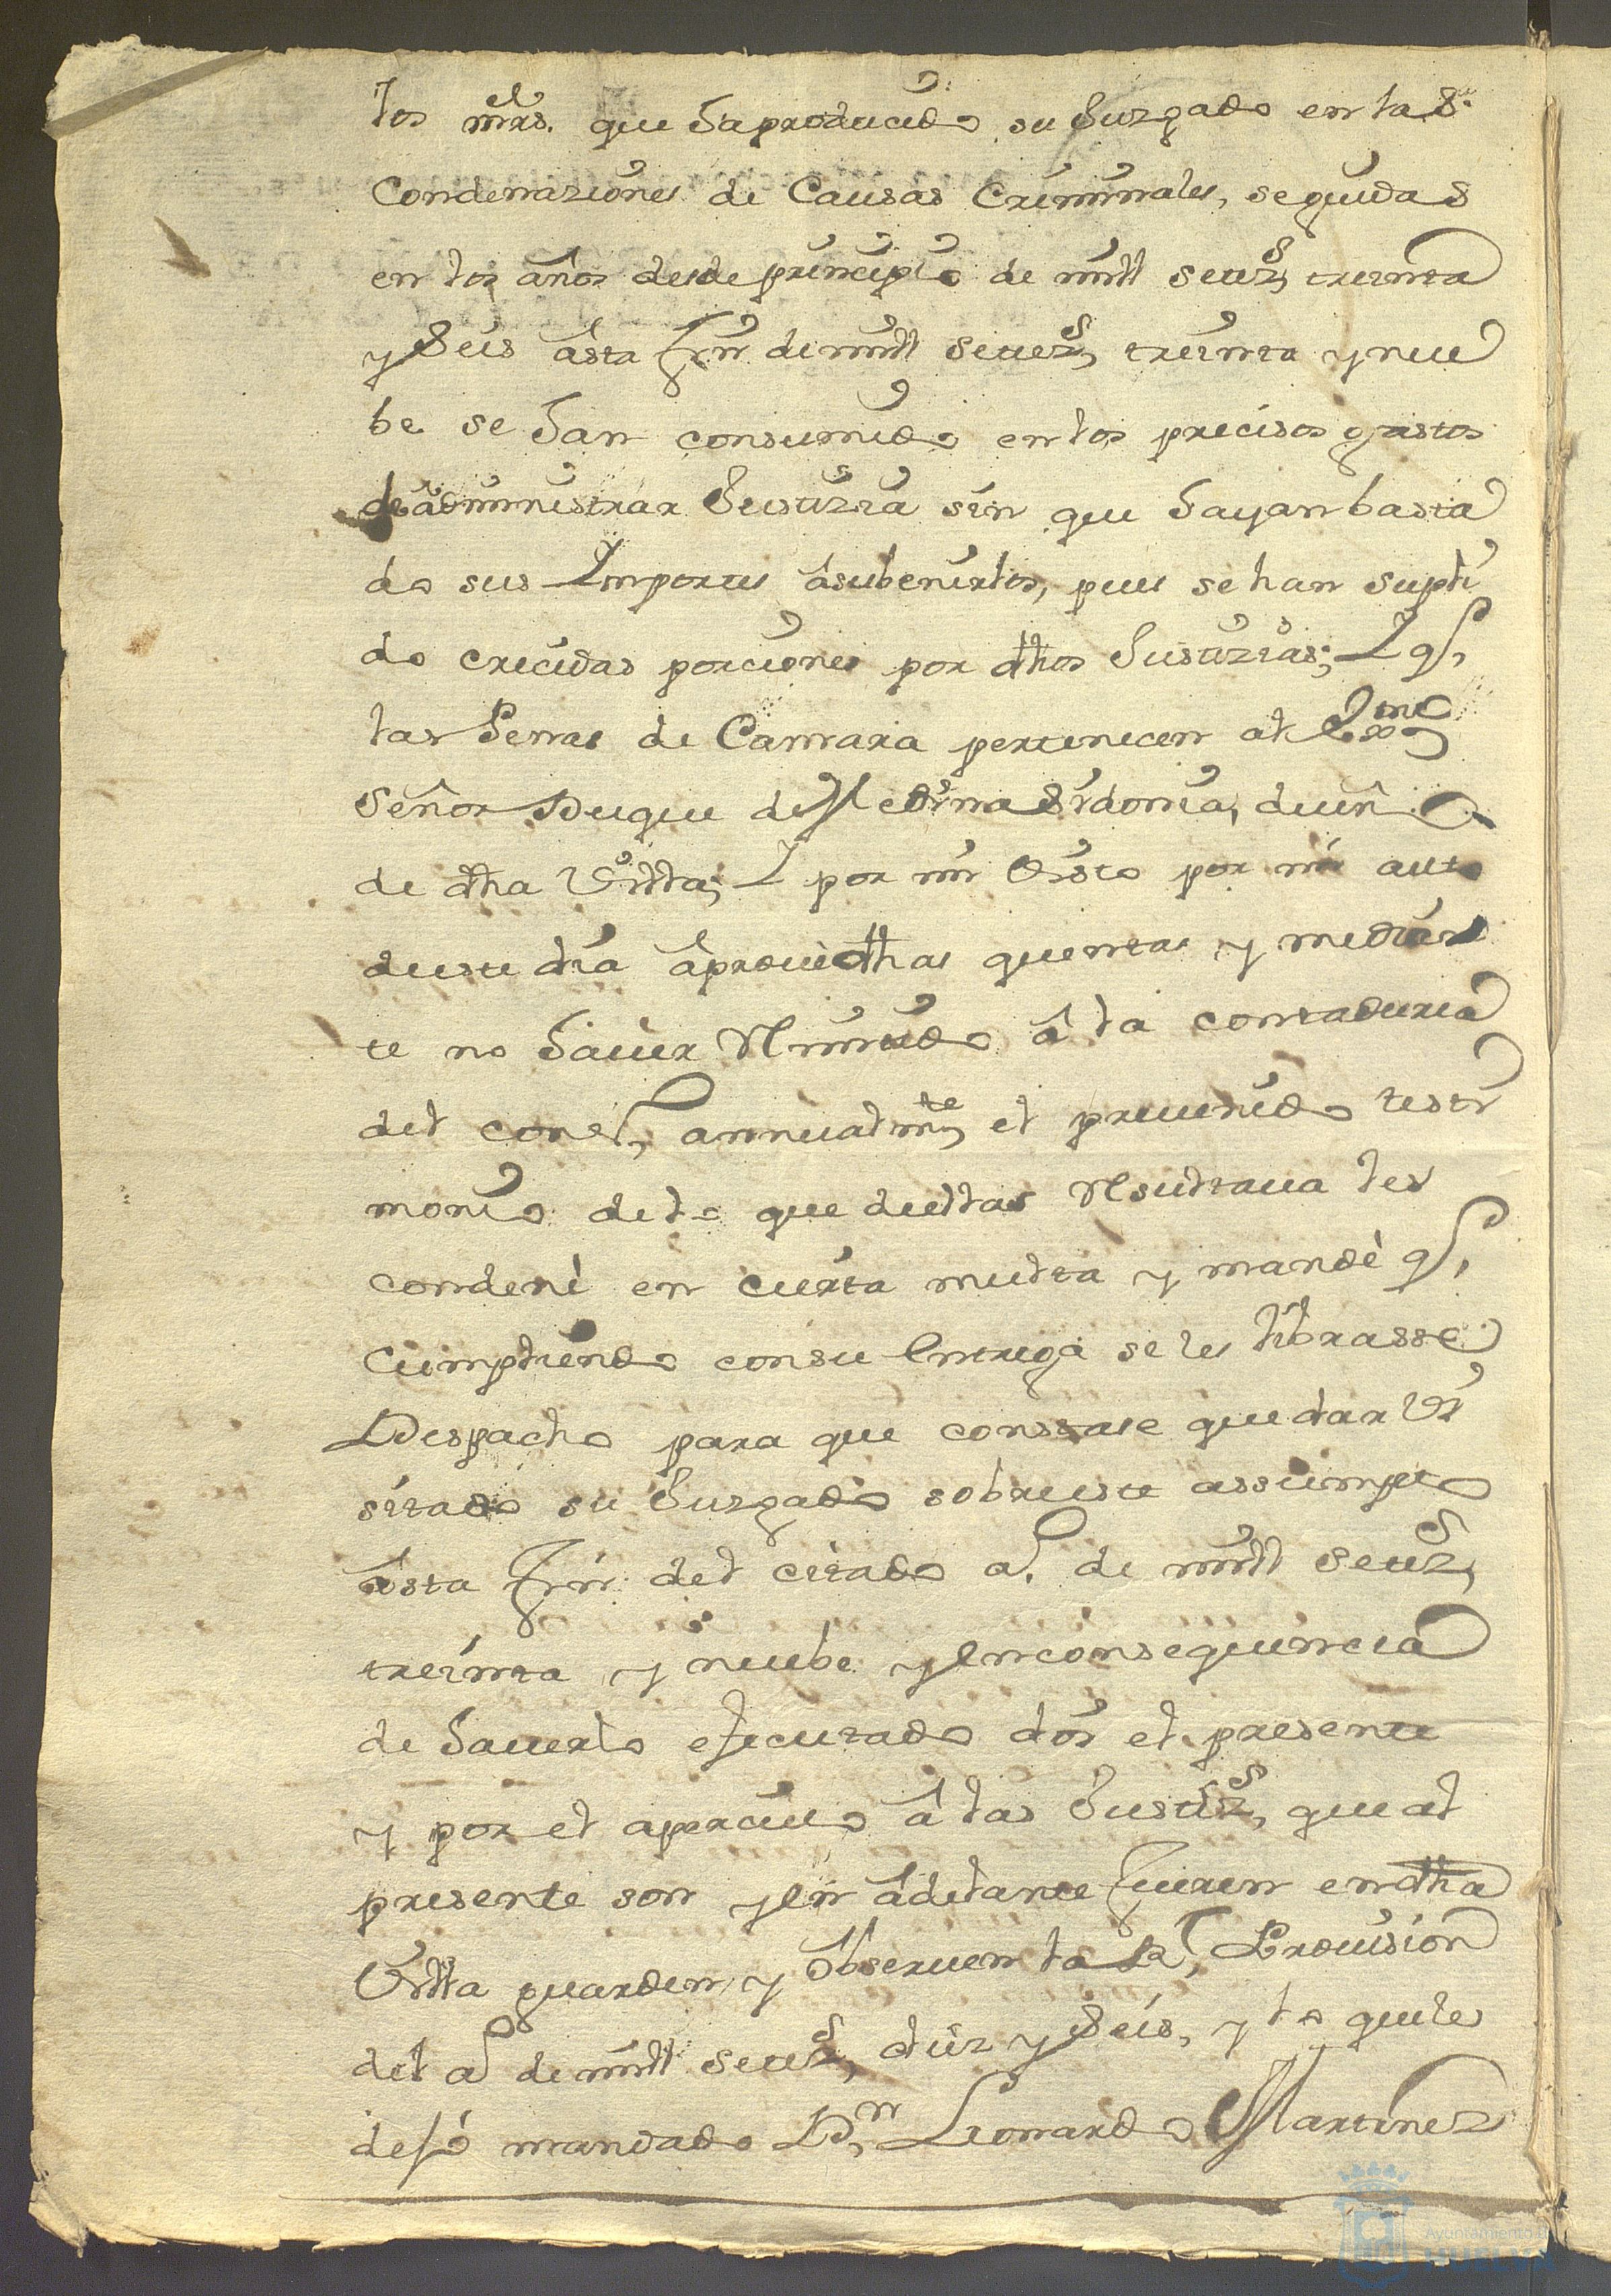 los mrs. que Ha producido su Juzgado en las
Condenaziones de Causas Criminales, seguidas
en los años desde principio de mill setez.s treinta
y Seis âsta Fin de mill setez.s treinta y nue
be se Han consumido en los precisos gastos
de administrar Justizia sin que Hayan basta
do sus Importes âsubenirlos, pues se han supli
do crecidas porciones por dhos Justizias; Y q.
las Penas de Camara pertenecen al Exmo
Señor Duque de Medina Sidonia, dueño
de dha Villa; Y por mi Visto por mi auto
deeste dia âprove dhas quentas y median
te no Haver Remitido â la contaduria
del cons.o annualm.te el prevenido testi
monio de lo que deellas Resultava les
condenè en cierta multa y mandè q.
Cumpliendo consu Entrega se les librasse
Despacho para que constase quedar Vi
sitado su Juzgado sobreeste assumpto
âsta Fin del citado a.o de mill setez.s
treinta y nuebe y Enconsequencia
de Haverlo executado doi el presente
y por el apercivo â las Justiz.s que al
presente son y En âdelante Fueren en dha
Villa guarden y Observen la R.l Provision
del a.o de mill setez.s diez y Seis, y lo que les
dejó mandado D.n Leonardo Martinez
Ayuntamiento de
HUELVA